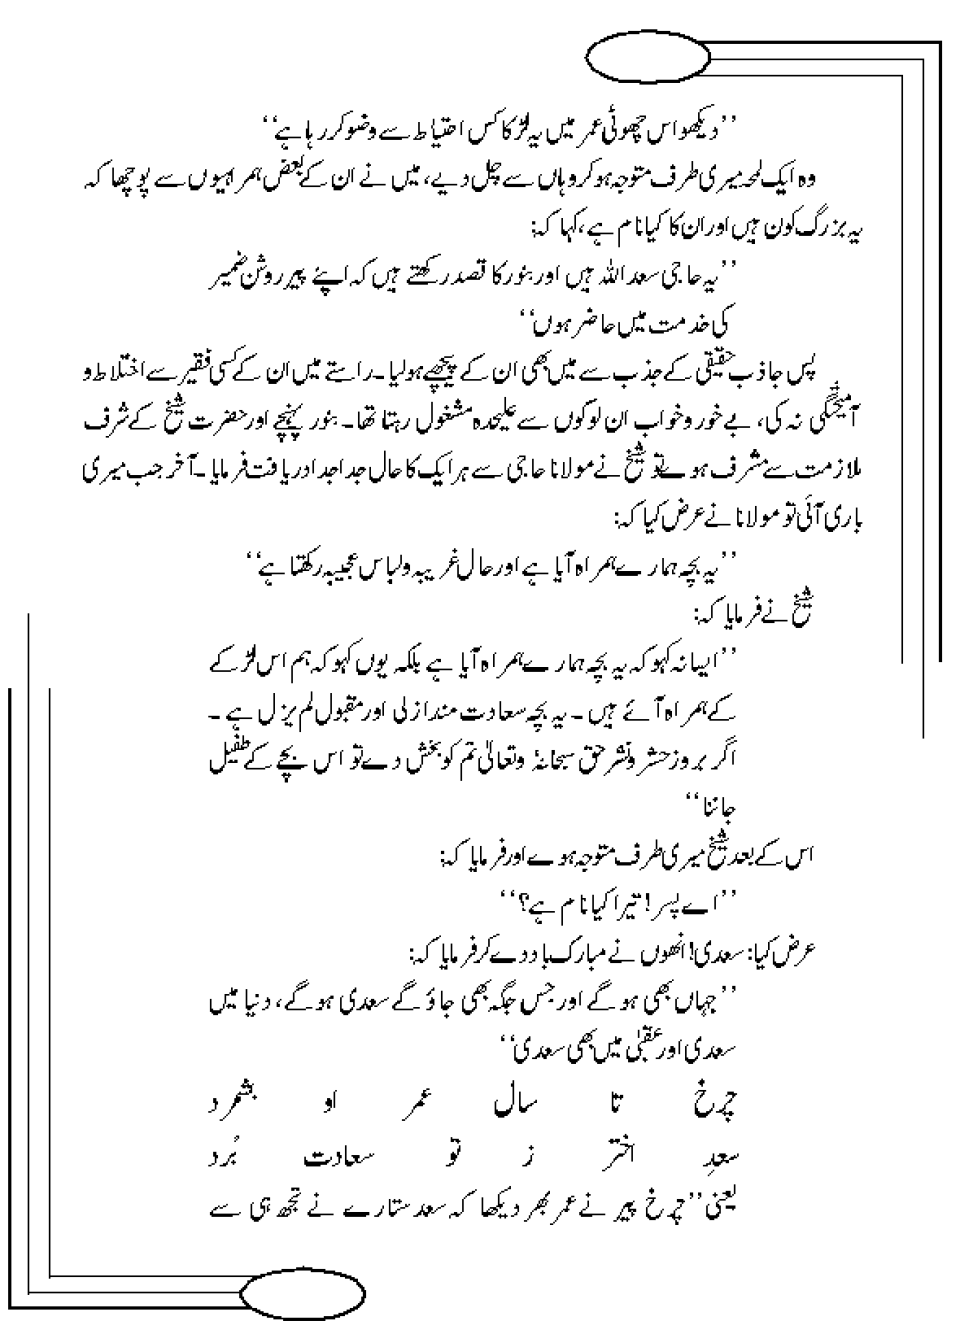 ’’دیکھو اس چھوٹی عمر میں یہ لڑکا کس احتیاط سے وضو کر رہا ہے‘‘
وہ ایک لمحہ میری طرف متوجہ ہو کر وہاں سے چل دیے، میں نے ان کے بعض ہمراہیوں سے پوچھا کہ
یہ بزرگ کون ہیں اور ان کا کیا نام ہے، کہا کہ:
’’یہ حاجی سعد اللہ ہیں اور بنور کا قصد رکھتے ہیں کہ اپنے پیر روشن ضمیر
کی خدمت میں حاضر ہوں‘‘
پس جاذب حقیقی کے جذب سے میں بھی ان کے پیچھے ہو لیا۔ راستے میں ان کے کسی فقیر سے اختلاط و
آمیختگی نہ کی، بے خور و خواب ان لوگوں سے علیحدہ مشغول رہتا تھا۔ بنور پہنچے اور حضرت شیخ کے شرف
ملازمت سے مشرف ہوے تو شیخ نے مولانا حاجی سے ہر ایک کا حال جدا جدا دریافت فرمایا۔ آخر جب میری
باری آئی تو مولانا نے عرض کیا کہ:
’’یہ بچہ ہمارے ہمراہ آیا ہے اور حال غریبہ و لباس عجیبہ رکھتا ہے‘‘
شیخ نے فرمایا کہ:
’’ایسا نہ کہو کہ یہ بچہ ہمارے ہمراہ آیا ہے بلکہ یوں کہو کہ ہم اس لڑکے
کے ہمراہ آئے ہیں۔ یہ بچہ سعادت مند ازلی اور مقبول لم یزل ہے۔
اگر بروز حشر و نشر حق سبحانہٗ وتعالیٰ تم کو بخش دے تو اس بچے کے طفیل
جاننا‘‘
اس کے بعد شیخ میری طرف متوجہ ہوے اور فرمایا کہ:
’’اے پسر! تیرا کیا نام ہے؟‘‘
عرض کیا: سعدی! انھوں نے مبارک باد دے کر فرمایا کہ:
’’جہاں بھی ہو گے اور جس جگہ بھی جاؤ گے سعدی ہو گے، دنیا میں
سعدی اور عقبیٰ میں بھی سعدی‘‘
چرخ تا سال عمر او بشمرد
سعدِ اختر ز تو سعادت بُرد
یعنی ’’چرخ پیر نے عمر بھر دیکھا کہ سعد ستارے نے تجھ ہی سے